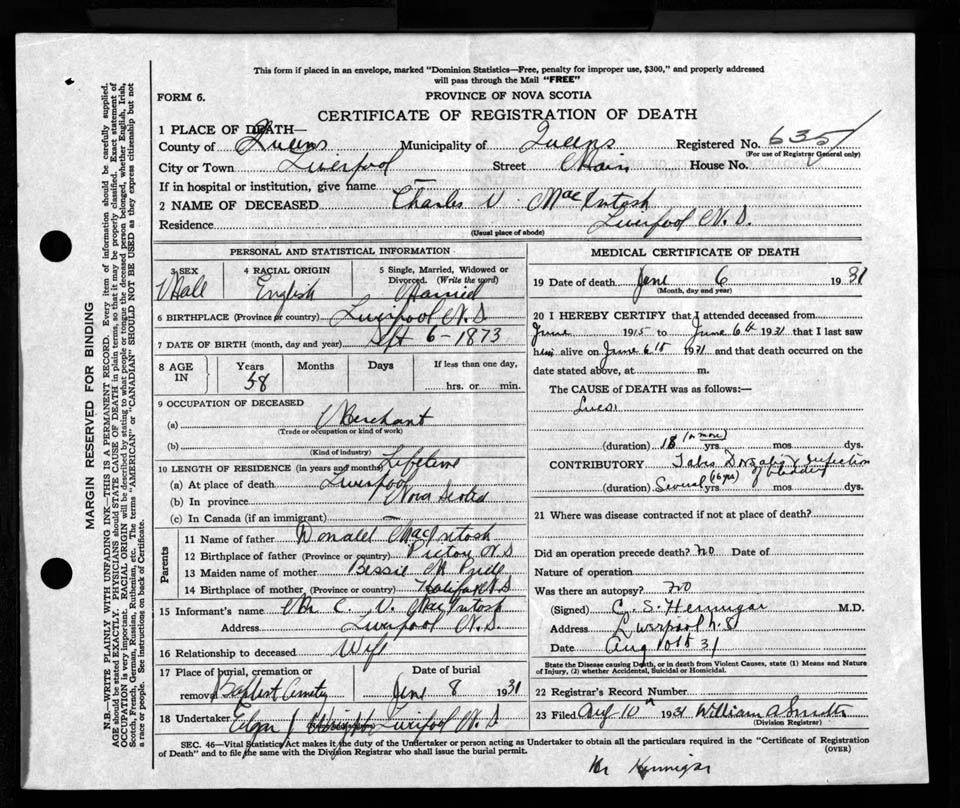 This form if placed in an envelope, marked "Dominion Statistics—Free, penalty for improper use, $300," and properly addressed
will pass through the Mail "FREE"
FORM 6.
PROVINCE OF NOVA SCOTIA
CERTIFICATE OF REGISTRATION OF DEATH
1 PLACE OF DEATH—
County of Queens Municipality of Queens Registered No. 6351
(For use of Registrar General only)
City or Town Liverpool Street Main House No.
If in hospital or institution, give name —
2 NAME OF DECEASED Charles V. MacIntosh
Residence Liverpool N. S.
(Usual place of abode)
PERSONAL AND STATISTICAL INFORMATION
3 SEX 4 RACIAL ORIGIN 5 Single, Married, Widowed or
Divorced. (Write the word)
Male English Married
6 BIRTHPLACE (Province or country) Liverpool N. S
7 DATE OF BIRTH (month, day and year) Sept 6-1873
8 AGE IN Years Months Days If less than one day,
58 hrs. or min.
9 OCCUPATION OF DECEASED
(a) Merchant
(Trade or occupation or kind of work)
(b)
(Kind of industry)
10 LENGTH OF RESIDENCE (in years and months) Lifetime
(a) At place of death Liverpool
(b) In province Nova Scotia
(c) In Canada (if an immigrant) —
Parents
11 Name of father Donald MacIntosh
12 Birthplace of father (Province or country) Pictou N. S
13 Maiden name of mother Bessie M
14 Birthplace of mother (Province or country) Halifax N. S
15 Informant's name C. V. MacIntosh
Address Liverpool N. S
16 Relationship to deceased Wife
17 Place of burial, cremation or Date of burial
removal Baptist Cemetery June 8 1931
18 Undertaker Liverpool N. S
MEDICAL CERTIFICATE OF DEATH
19 Date of death June 6 1931
(Month, day and year)
20 I HEREBY CERTIFY that I attended deceased from
June 1915 to June 6th 1931 that I last saw
him alive on June 6th 1931 and that death occurred on the
date stated above, at m.
The CAUSE of DEATH was as follows:—
Lues
(duration) 18 (or more) yrs. mos. dys.
CONTRIBUTORY Tabes Dorsalis & infection
of bladder
(duration) Several yrs. mos. dys.
21 Where was disease contracted if not at place of death?
Did an operation precede death? no Date of
Nature of operation
Was there an autopsy? no
(Signed) C. S. Hennigar M.D.
Address Liverpool N. S
Date Aug 10th 31
State the Disease causing Death, or in death from Violent Causes, state (1) Means and Nature
of Injury, (2) whether Accidental, Suicidal or Homicidal.
22 Registrar's Record Number
23 Filed Aug 10th 1931 William A Smith
(Division Registrar)
SEC. 46—Vital Statistics Act makes it the duty of the Undertaker or person acting as Undertaker to obtain all the particulars required in the "Certificate of Registration
of Death" and to file the same with the Division Registrar who shall issue the burial permit.
(OVER)
Hennigar
MARGIN RESERVED FOR BINDING
N.B.—WRITE PLAINLY WITH UNFADING INK—THIS IS A PERMANENT RECORD. Every item of information should be carefully supplied.
AGE should be stated EXACTLY. PHYSICIANS should STATE CAUSE OF DEATH in plain terms, so that it may be properly classified. Exact statement of
OCCUPATION is very important. RACIAL ORIGIN will be described by stating to what people or tongue the deceased person belonged, whether English, Irish,
Scotch, French, German, Russian, Ruthenian, etc. The terms "AMERICAN" or "CANADIAN" SHOULD NOT BE USED as they express citizenship but not
a race or people. See instructions on back of Certificate.